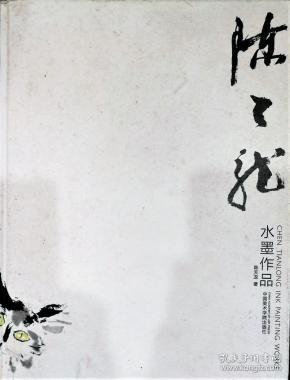 陈天龙
CHEN TIANLONG INK PAINTING WORKS
水墨作品
陈天龙 著
中国美术学院出版社
孔夫子旧书网